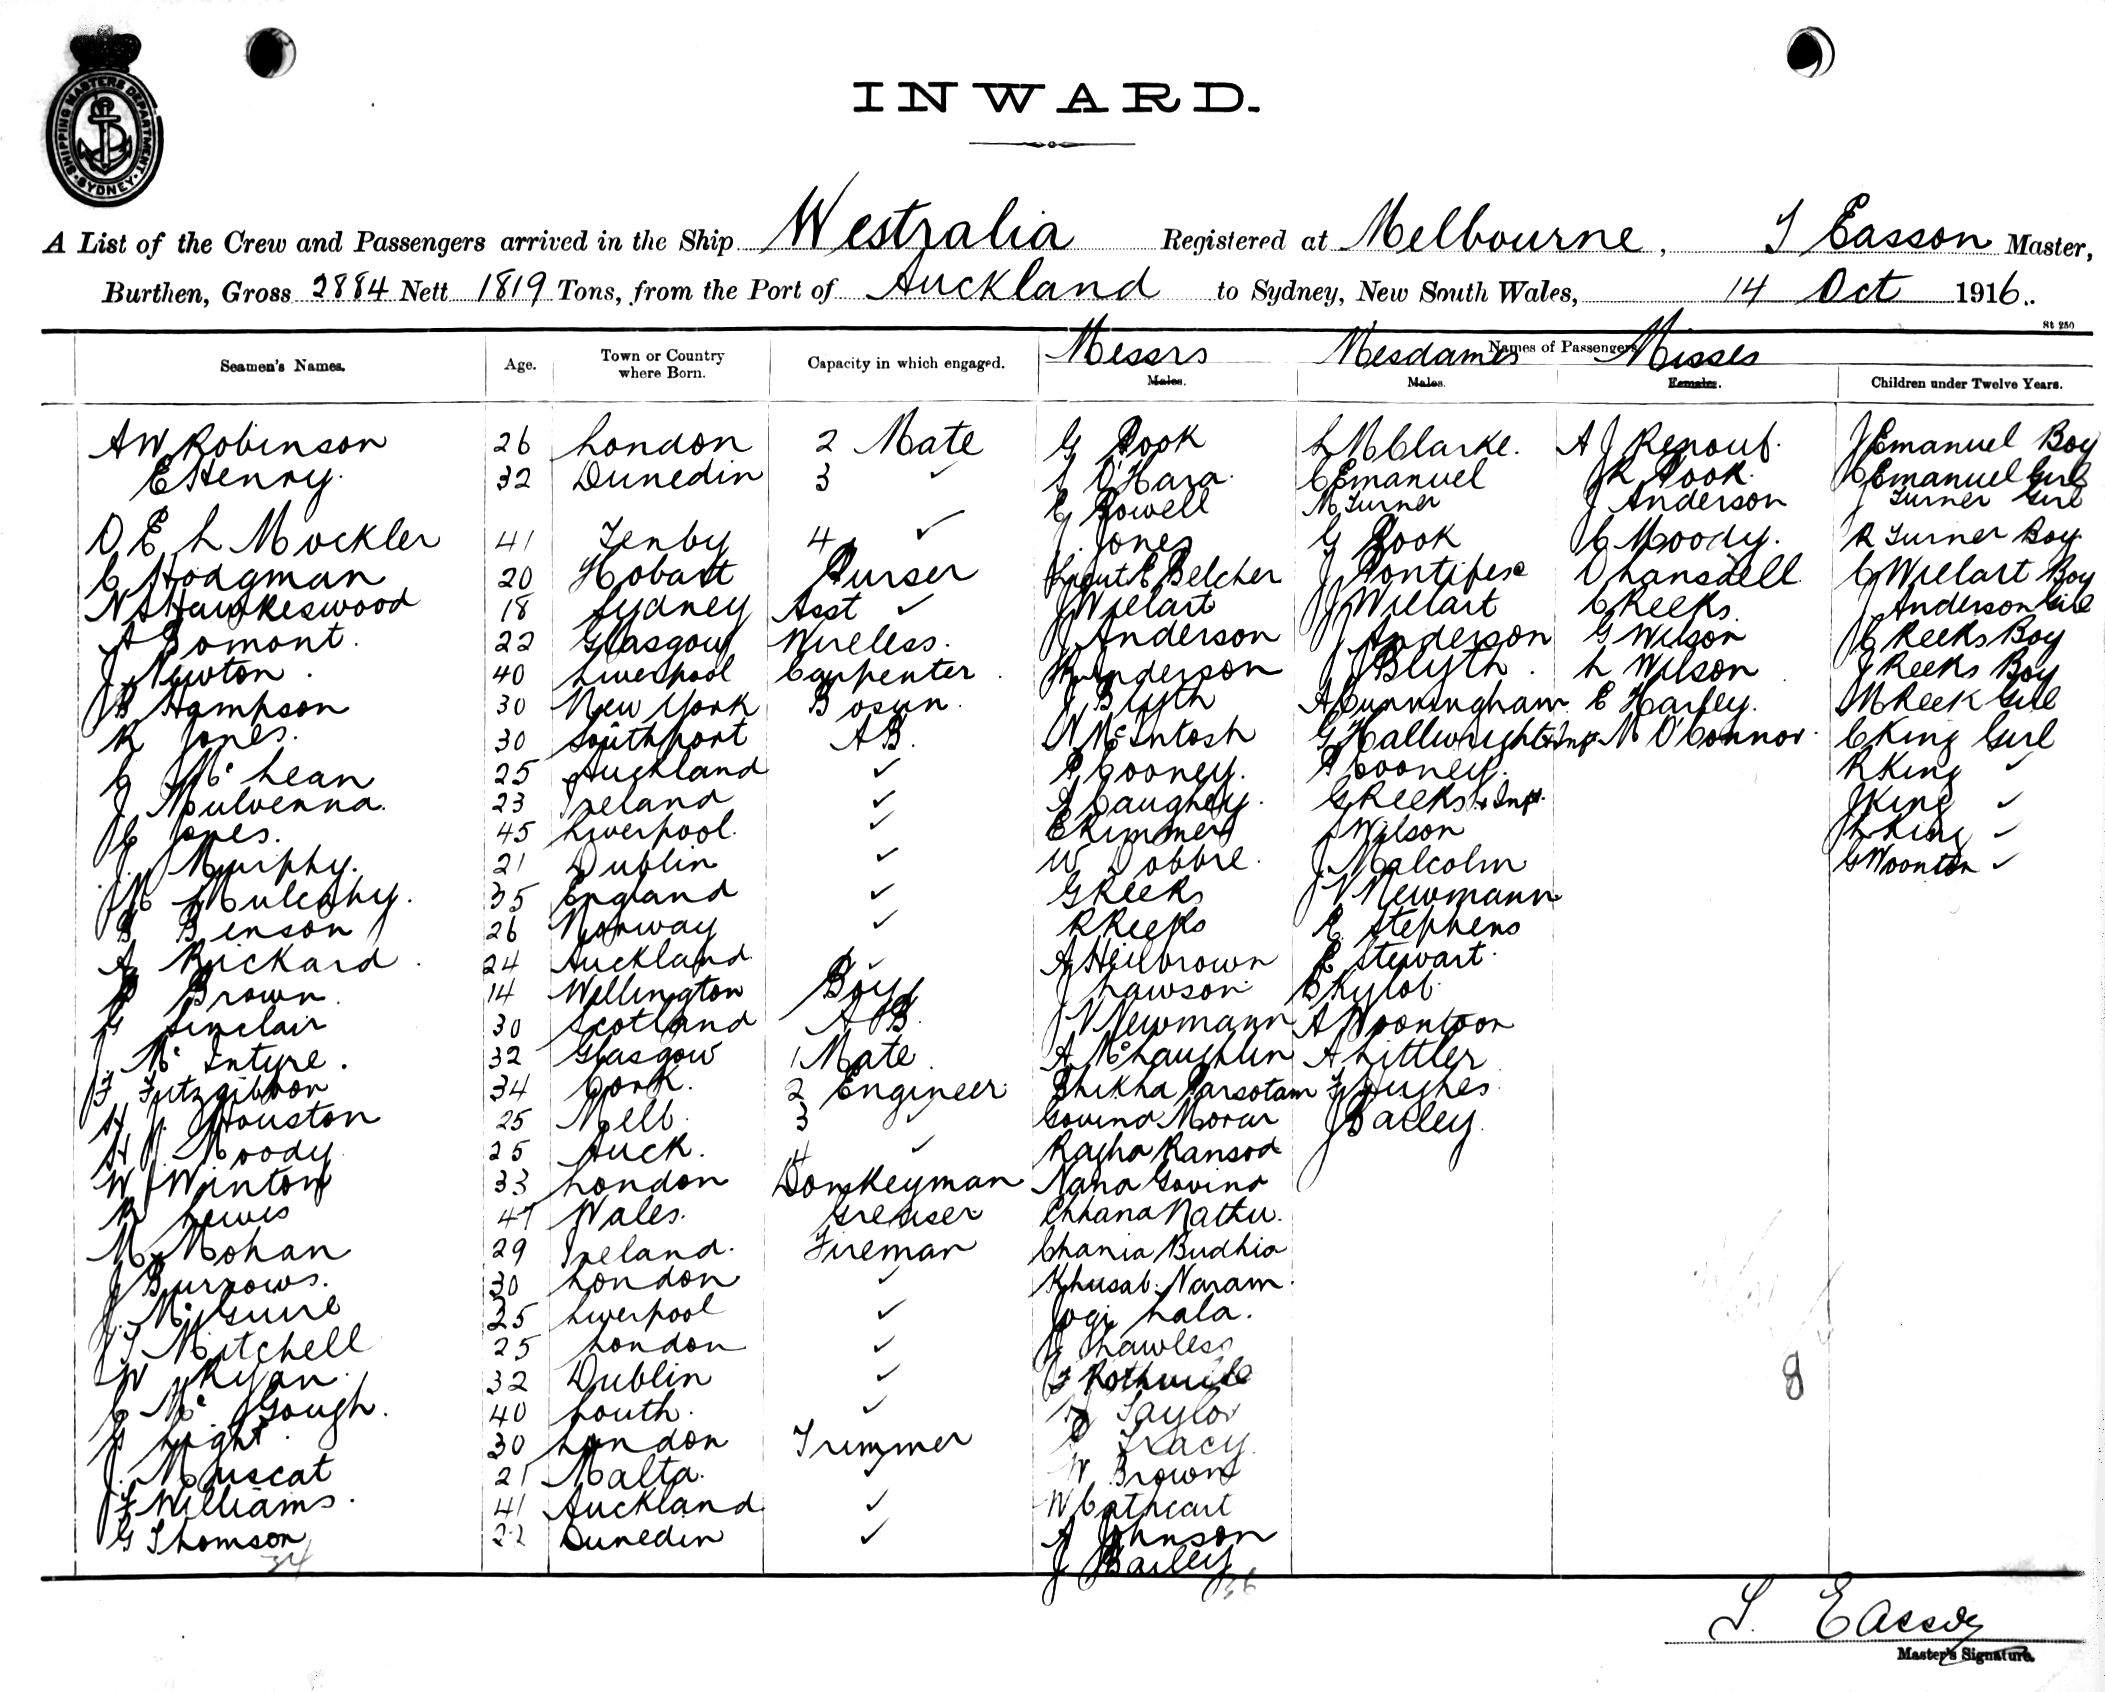 SHIPPING MASTERS DEPARTMENT
SYDNEY
INWARD.
A List of the Crew and Passengers arrived in the Ship Westralia Registered at Melbourne, S Easson Master,
Burthen, Gross 2884 Nett 1819 Tons, from the Port of Auckland to Sydney, New South Wales, 14 Oct 1916.
St 250
Messrs Mesdames Names of Passengers Misses
Seamen's Names. Age. Town or Country where Born. Capacity in which engaged. Males. Males. Females. Children under Twelve Years.
A W Robinson 26 London 2 Mate G Pook L M Clarke. A J Renouf. J Emanuel Boy
E Henry. 32 Dunedin 3 ✓ S O'Hara. C Emanuel R Pook. C Emanuel Girl
G Powell M Turner J Anderson J Turner Girl
D E L Mockler 41 Tenby 4 ✓ J Jones G Pook C Moody. R Turner Boy.
C Hodgman 20 Hobart Purser Lieut E Belcher J Pontifex D Lansdell C Willart Boy
N S Hawkeswood 18 Sydney Asst ✓ J Willart J Willart C Reeks. J Anderson Girl
A Bomont. 22 Glasgow Wireless. J Anderson J Anderson G Wilson C Reeks Boy
J Newton. 40 Liverpool Carpenter. Anderson J Blyth. L Wilson J Reeks Boy
B Hampson 30 New York Bosun. J Blyth A Cunningham E Harley. M Reek Girl
R Jones. 30 Southport AB. N McIntosh G Hallwright & Inf M O'Connor. C King Girl
G McLean 25 Auckland ✓ P Cooney. P Cooney. R King ✓
J Mulvenna. 23 Ireland ✓ Caughey. G Reeks & Inf. J King ✓
C Jones. 45 Liverpool. ✓ E Rimmer Wilson L King ✓
J. Murphy. 21 Dublin ✓ W Dobbie. J Malcolm G Woonton ✓
M Mulcahy. 35 England ✓ G Reeks J V Newmann
B Benson 26 Norway ✓ R Reeks R. Stephens
A Rickard. 24 Auckland ✓ A Heilbrown E Stewart.
P Brown. 14 Wellington Boy J Lawson.
Sinclair 30 Scotland AB. J V Newmann A Woontoon
J. McIntyre. 32 Glasgow 1 Mate A McLaughlin A Littler
F Fitzgibbon 34 Cork. 2 Engineer. Bhikha Parsotam F Hughes.
H J. Houston 25 Melb. 3 ✓ Govind Morar J Bailey.
H Moody 25 Auck. 4 ✓ Ragha Ransod
W Winton 33 London Donkeyman Nana Govind
R Lewis 47 Wales. Greaser Chhana Nathu.
M Mohan 29 Ireland. Fireman Chania Budhia
J Burrows. 30 London ✓ Khusal. Naram.
J. McGuire 25 Liverpool ✓ Jogi Lala.
J Mitchell 25 London ✓ Lawless
W Ryan. 32 Dublin ✓
C McGough. 40 Louth. ✓ Taylor
Light. 30 London Trimmer Tracy.
J. Muscat 21 Malta. ✓ W Brown
F Williams. 41 Auckland ✓ W Cathcart
G Thomson 22 Dunedin ✓ A Johnson
34 J Bailey
36
8
S. Easson
Master's Signature.